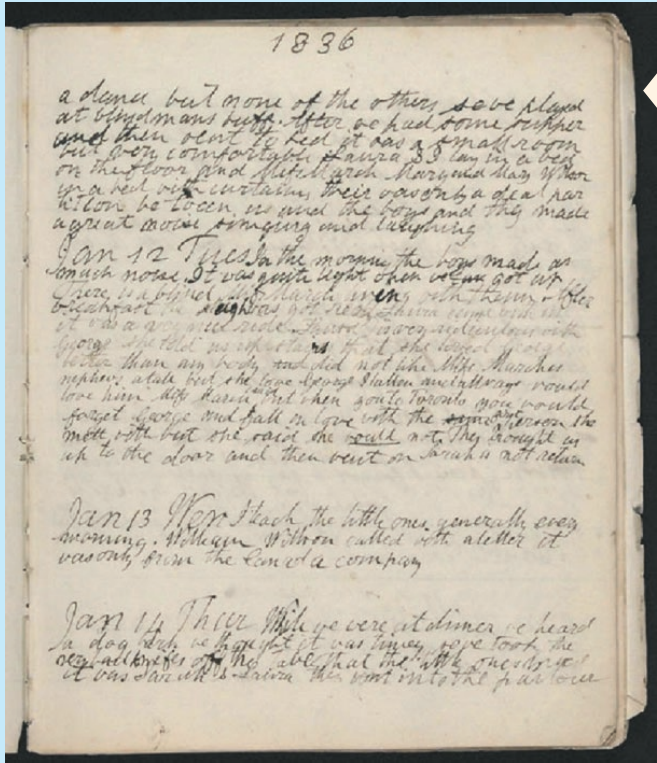 1836
a dance but none of the others save played
at blindmans buff. After we had some supper
and then went to bed it was a small room
but very comfortable Laura & I lay in a bed
on the floor and Miss March Mary and Mary Wilson
in a bed with curtains their was only a deal par
between us and the boys and they made
a great noise singing and laughing
Jan 12 Tues In the morning the boys made as
much noise. It was quite light when we got up
There is a Miss March living with them. After
breakfast the sleigh was got ready
it was a very nice ride. is very ridiculous with
George she told us upstairs that she loved George
better than any body and did not like Miss Marches
nephews atall but she love George Hallen and always would
love him Miss March but when you go to Toronto you would
forget George and fall in love with the person she
mett with but she said she would not. They brought us
up to the door and then went on Sarah a not return
Jan 13 Wen I teach the little ones generally every
morning. William Willson called with a letter it
was only from the Canada company
Jan 14 Thur While we were at dinner we heard
a dog we thought it was times we took the
knifes off the table that the little ones
it was Sarah & Laura they went into the parlour